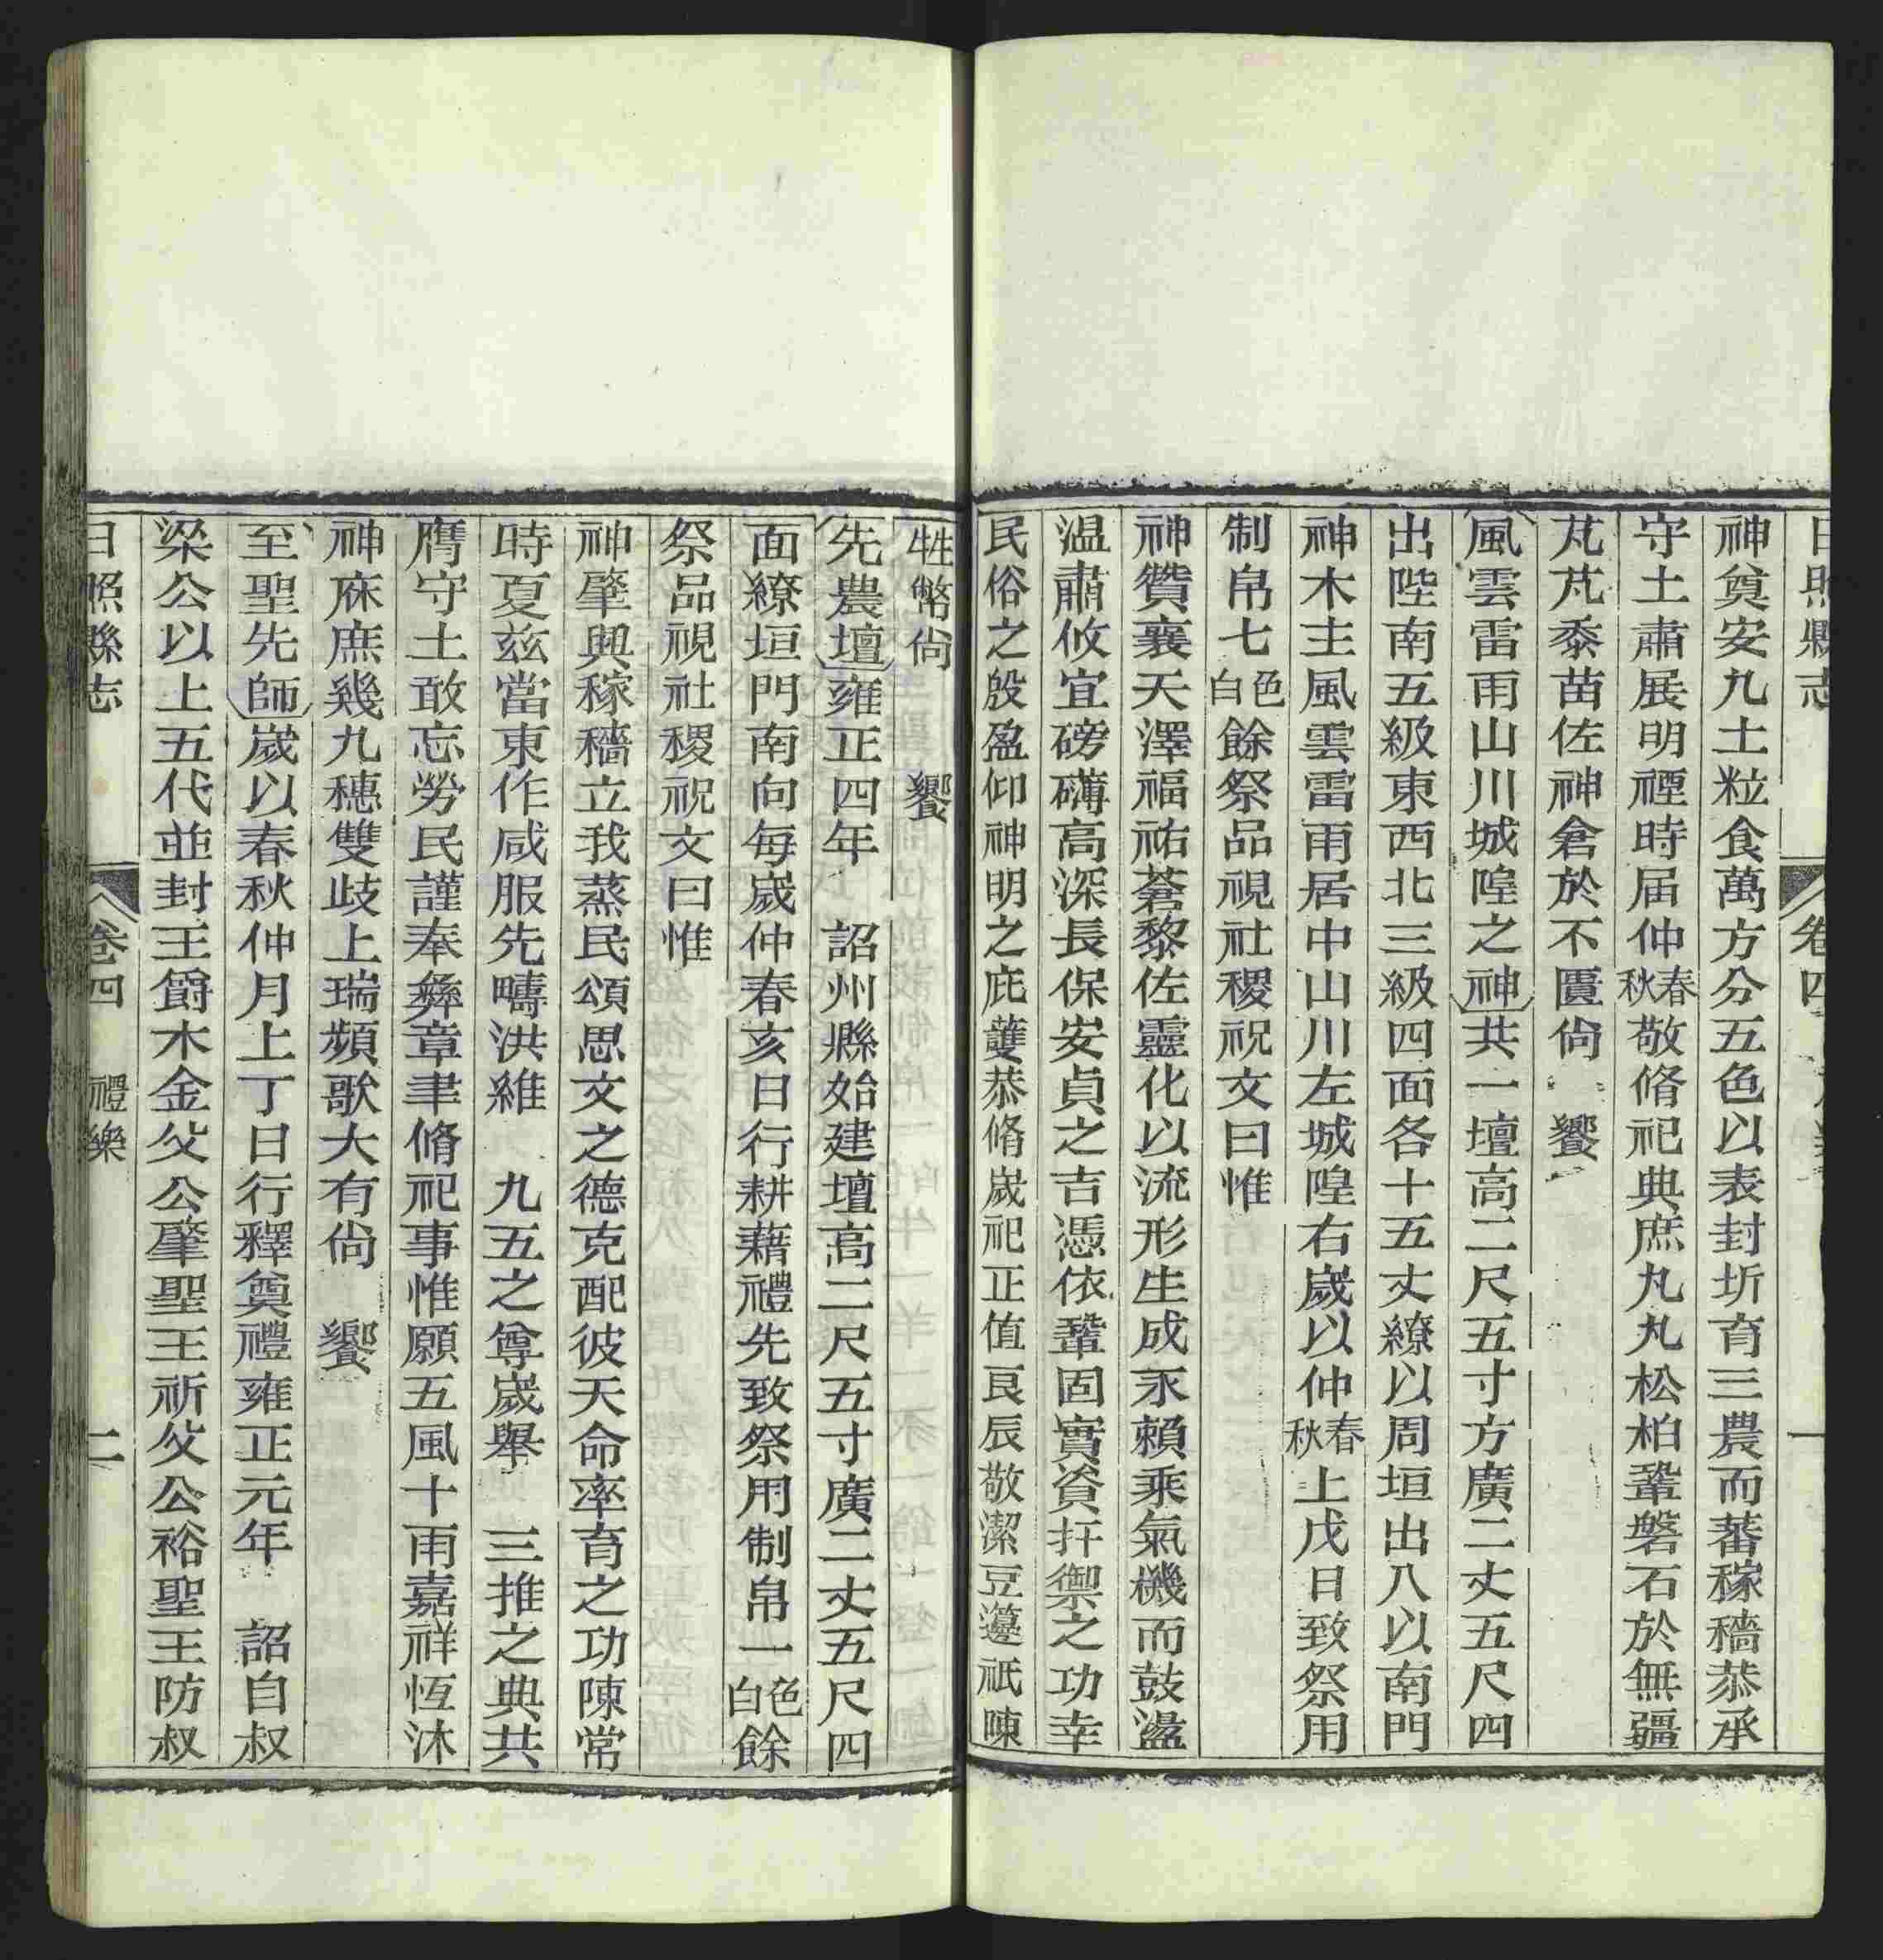 日照縣志 卷四 一
神奠安九土粒食萬方分五色以表封圻育三農而蕃稼穡恭承
守土肅展明禋時届仲春秋敬脩祀典庶丸丸松柏鞏磐石於無疆
芃芃黍苗佐神倉於不匱尙 饗
風雲雷雨山川城隍之神共一壇高二尺五寸方廣二丈五尺四
出陛南五級東西北三級四面各十五丈繚以周垣出八以南門
神木主風雲雷雨居中山川左城隍右歲以仲春秋上戊日致祭用
制帛七色白餘祭品視社稷祝文曰惟
神贊襄天澤福祐蒼黎佐靈化以流形生成永賴乘氣機而鼓盪
温肅攸宜磅礴高深長保安貞之吉憑依鞏固實資扞禦之功幸
民俗之殷盈仰神明之庇䕶恭脩歲祀正值良辰敬潔豆籩祇陳
牲幣尙 饗
先農壇雍正四年 詔州縣始建壇高二尺五寸廣二丈五尺四
面繚垣門南向每歲仲春亥日行耕藉禮先致祭用制帛一色白餘
祭品視社稷祝文曰惟
神肇興稼穡立我蒸民頌思文之德克配彼天命率育之功陳常
時夏兹當東作咸服先疇洪維 九五之尊歲舉 三推之典共
膺守土敢忘勞民謹奉彜章聿脩祀事惟願五風十雨嘉祥恆沐
神庥庶幾九穗雙歧上瑞頻歌大有尙 饗
至聖先師歲以春秋仲月上丁日行釋奠禮雍正元年 詔自叔
梁公以上五代並封王爵木金父公肇聖王祈父公裕聖王防叔
日照縣志 卷四 禮樂 二